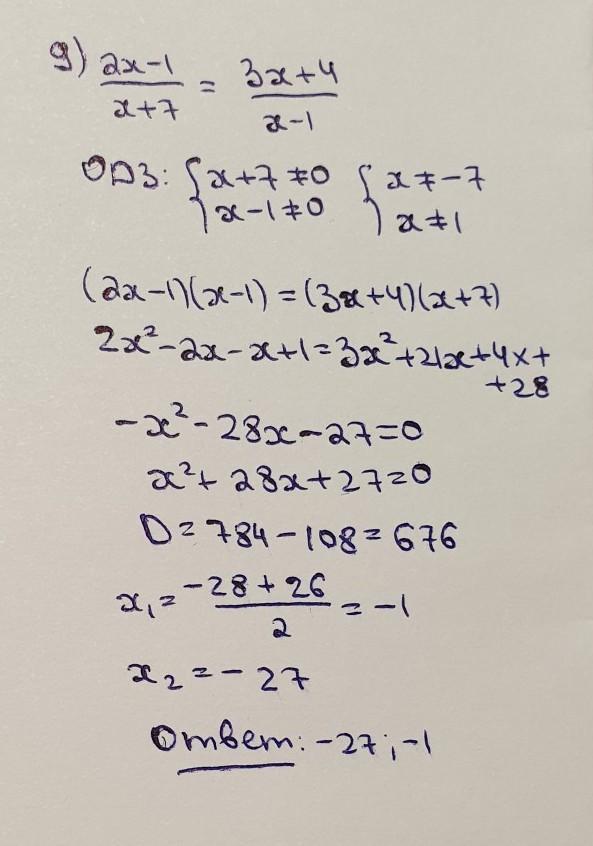 g) (2x-1)/(x+7) = (3x+4)/(x-1)
ОДЗ: { x+7≠0 { x≠-7
x-1≠0 x≠1
(2x-1)(x-1) = (3x+4)(x+7)
2x²-2x-x+1=3x²+21x+4x+
+28
-x²-28x-27=0
x²+28x+27=0
D=784-108=676
x₁=(-28+26)/2=-1
x₂=-27
Ответ: -27; -1